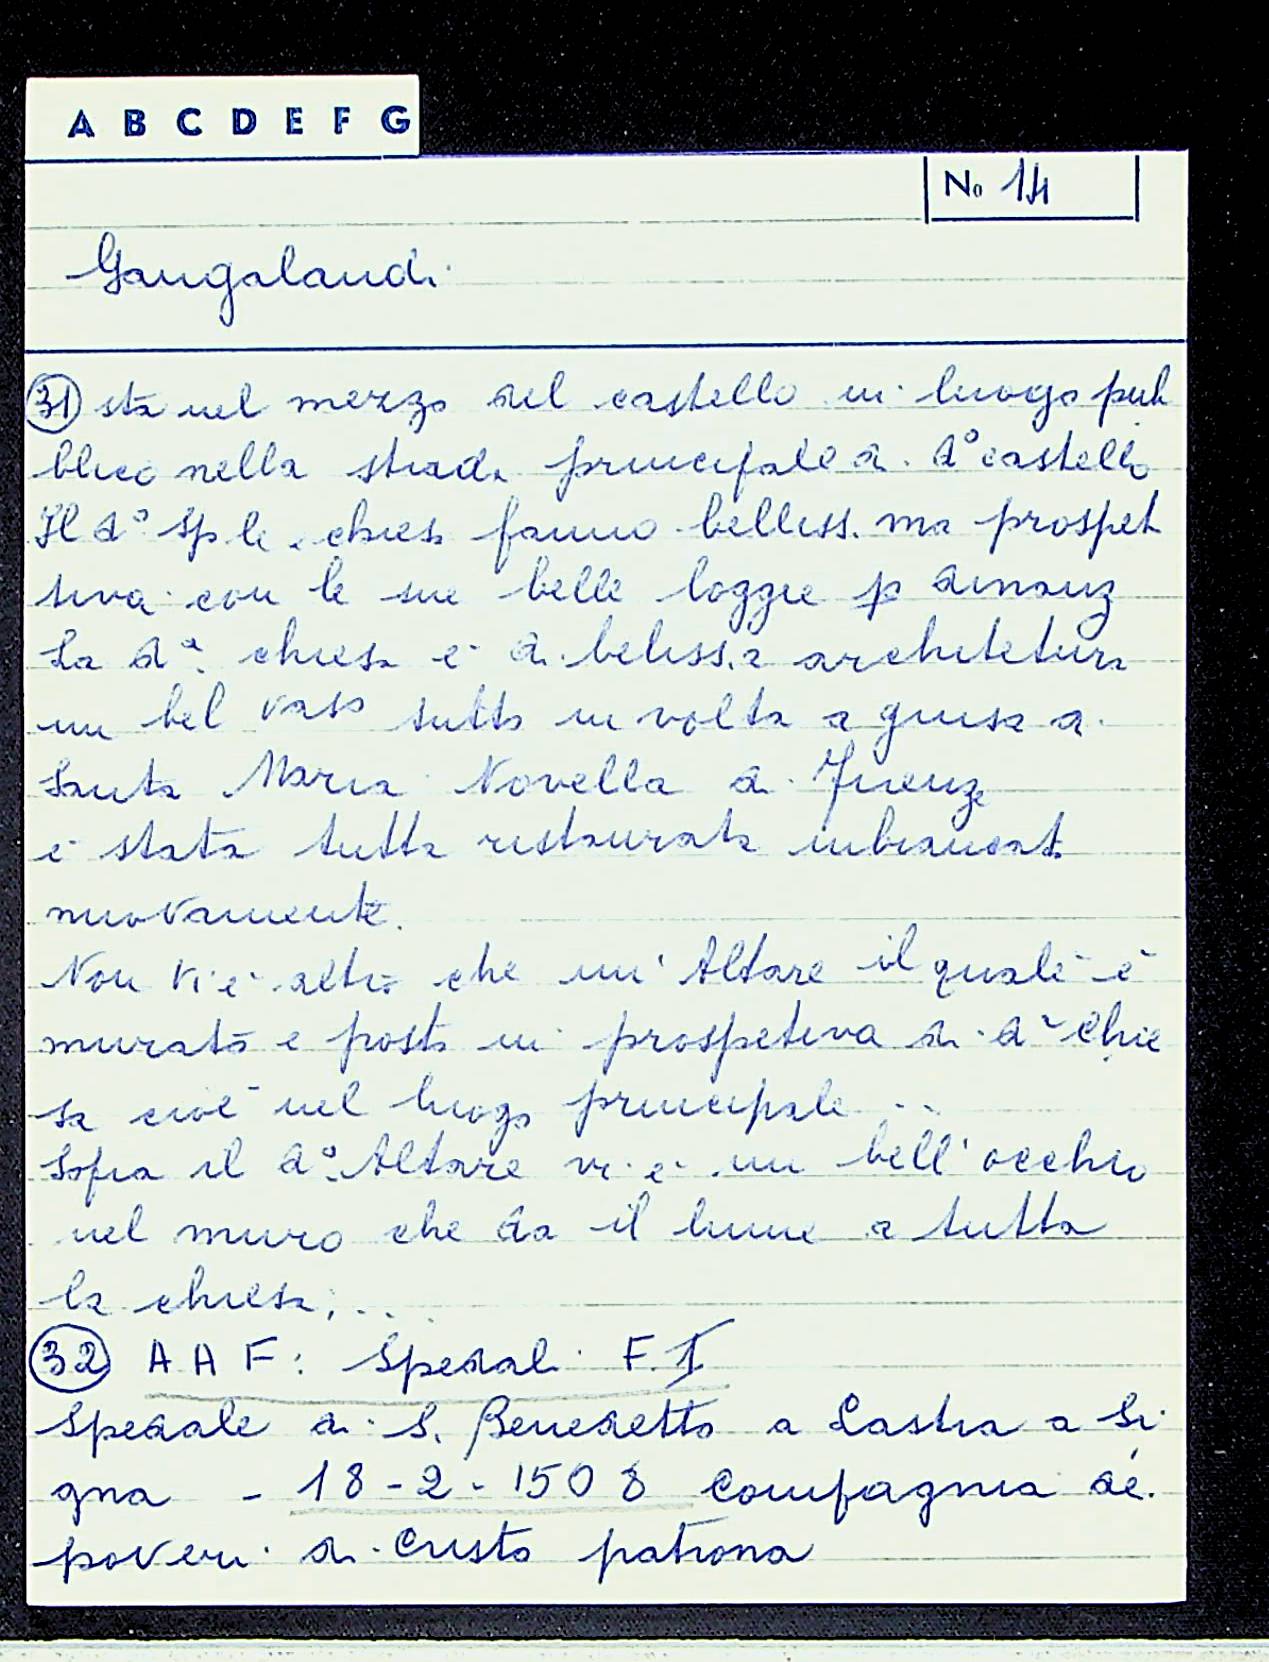 A B C D E F G
No 14
Gangalandi
31 sta nel mezzo del castello in luogo pub
blico nella strada principale di do castello
Il do Sple. chiesa fanno belliss.ma prospet
tiva con le sue belle loggie p dinanz
La da. chiesa è di beliss.a architetura
un bel vaso tutto in volta a guisa di
Santa Maria Novella di Firenze
è stata tutta restaurata inbiancat.
nuovamente.
Non vi è altro che un' Altare il quale è
murato e posto in prospetiva di da Chie
sa cioè nel luogo principale ..
Sopra il do. Altare vi è un bell' occhio
nel muro che da il lume a tutta
la chiesa; ...
32 A A F: Spedali F. I
Spedale di S. Benedetto a Lastra a Si
gna - 18-2-1508 Compagnia dé
poveri di Cristo patrona